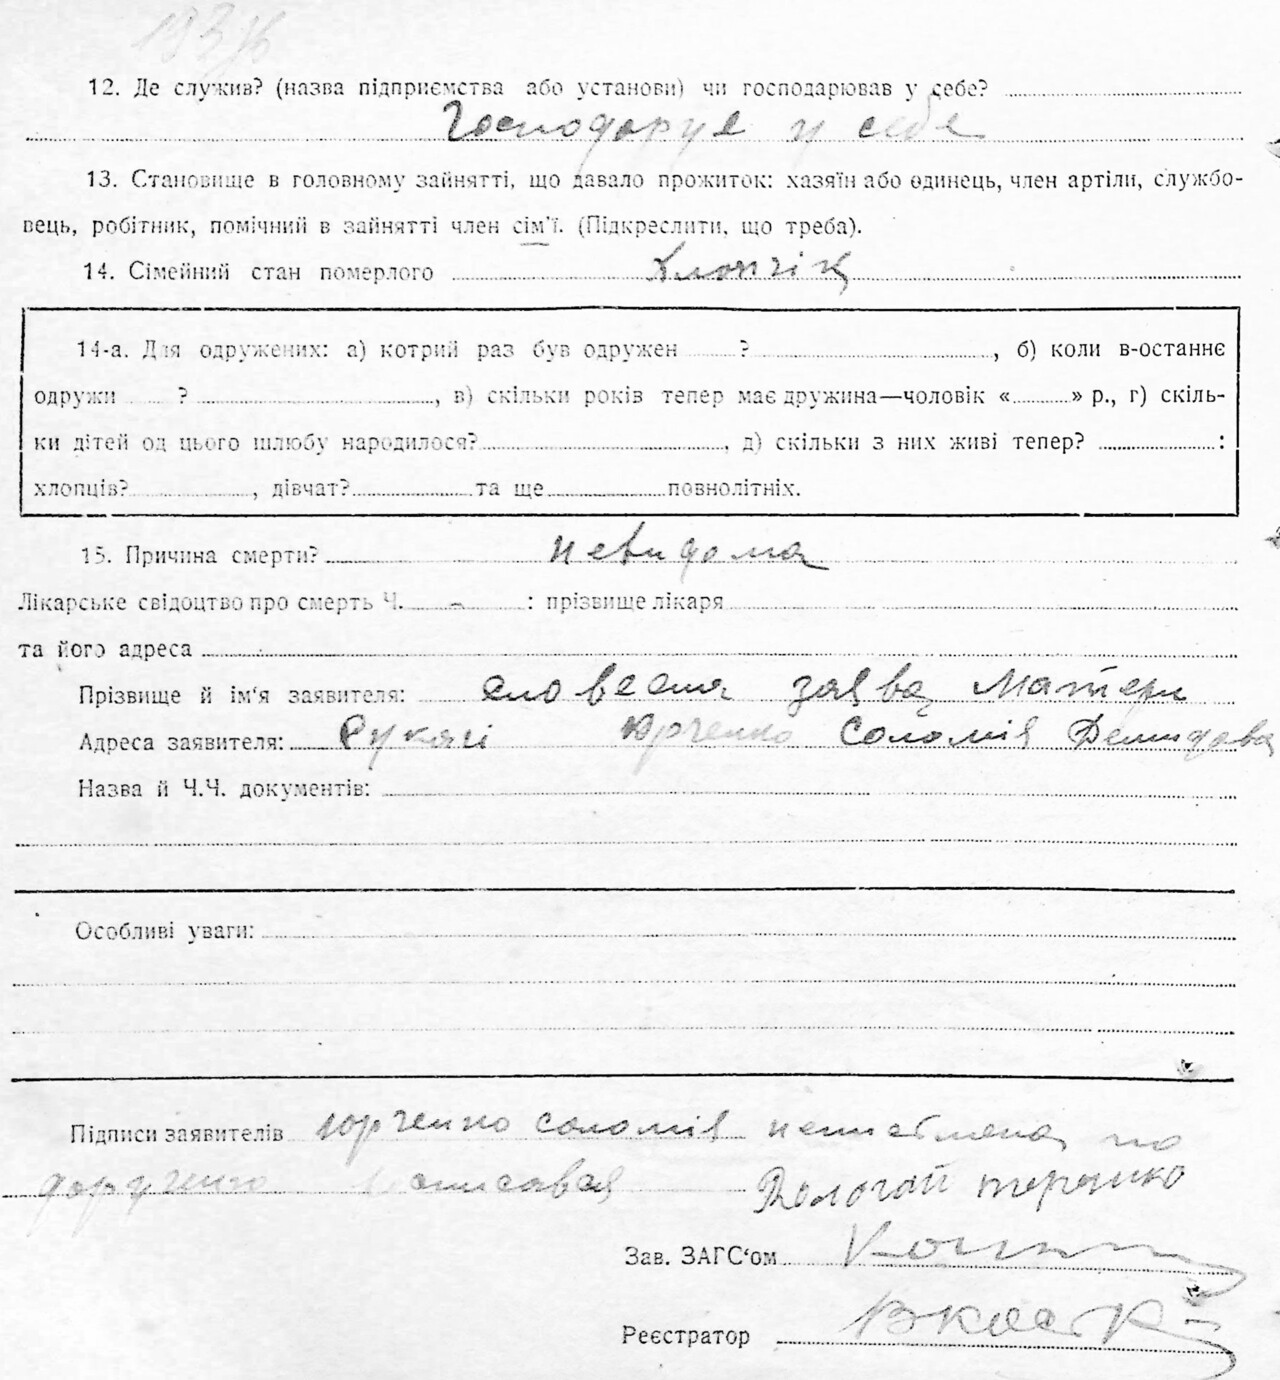 12. Де служив? (назва підприємства або установи) чи господарював у себе?
Господарує у себе
13. Становище в головному зайнятті, що давало прожиток: хазяїн або одинець, член артіли, службо-
вець, робітник, помічний в зайнятті член сім'ї. (Підкреслити, що треба).
14. Сімейний стан померлого Хлопчік
14-а. Для одружених: а) котрий раз був одружен ? , б) коли в-останнє
одружи ? , в) скільки років тепер має дружина—чоловік « » р., г) скіль-
ки дітей од цього шлюбу народилося? , д) скільки з них живі тепер? :
хлопців? , дівчат? та ще повнолітніх.
15. Причина смерти? невидома
Лікарське свідоцтво про смерть Ч. - : прізвище лікаря
та його адреса
Прізвище й ім'я заявителя: словесная заява Матери
Адреса заявителя: Юрченко Соломія Демидова
Назва й Ч.Ч. документів:
Особливі уваги:
Підписи заявителів Юрченко Соломія по
доручению
Зав. ЗАГС'ом
Реєстратор